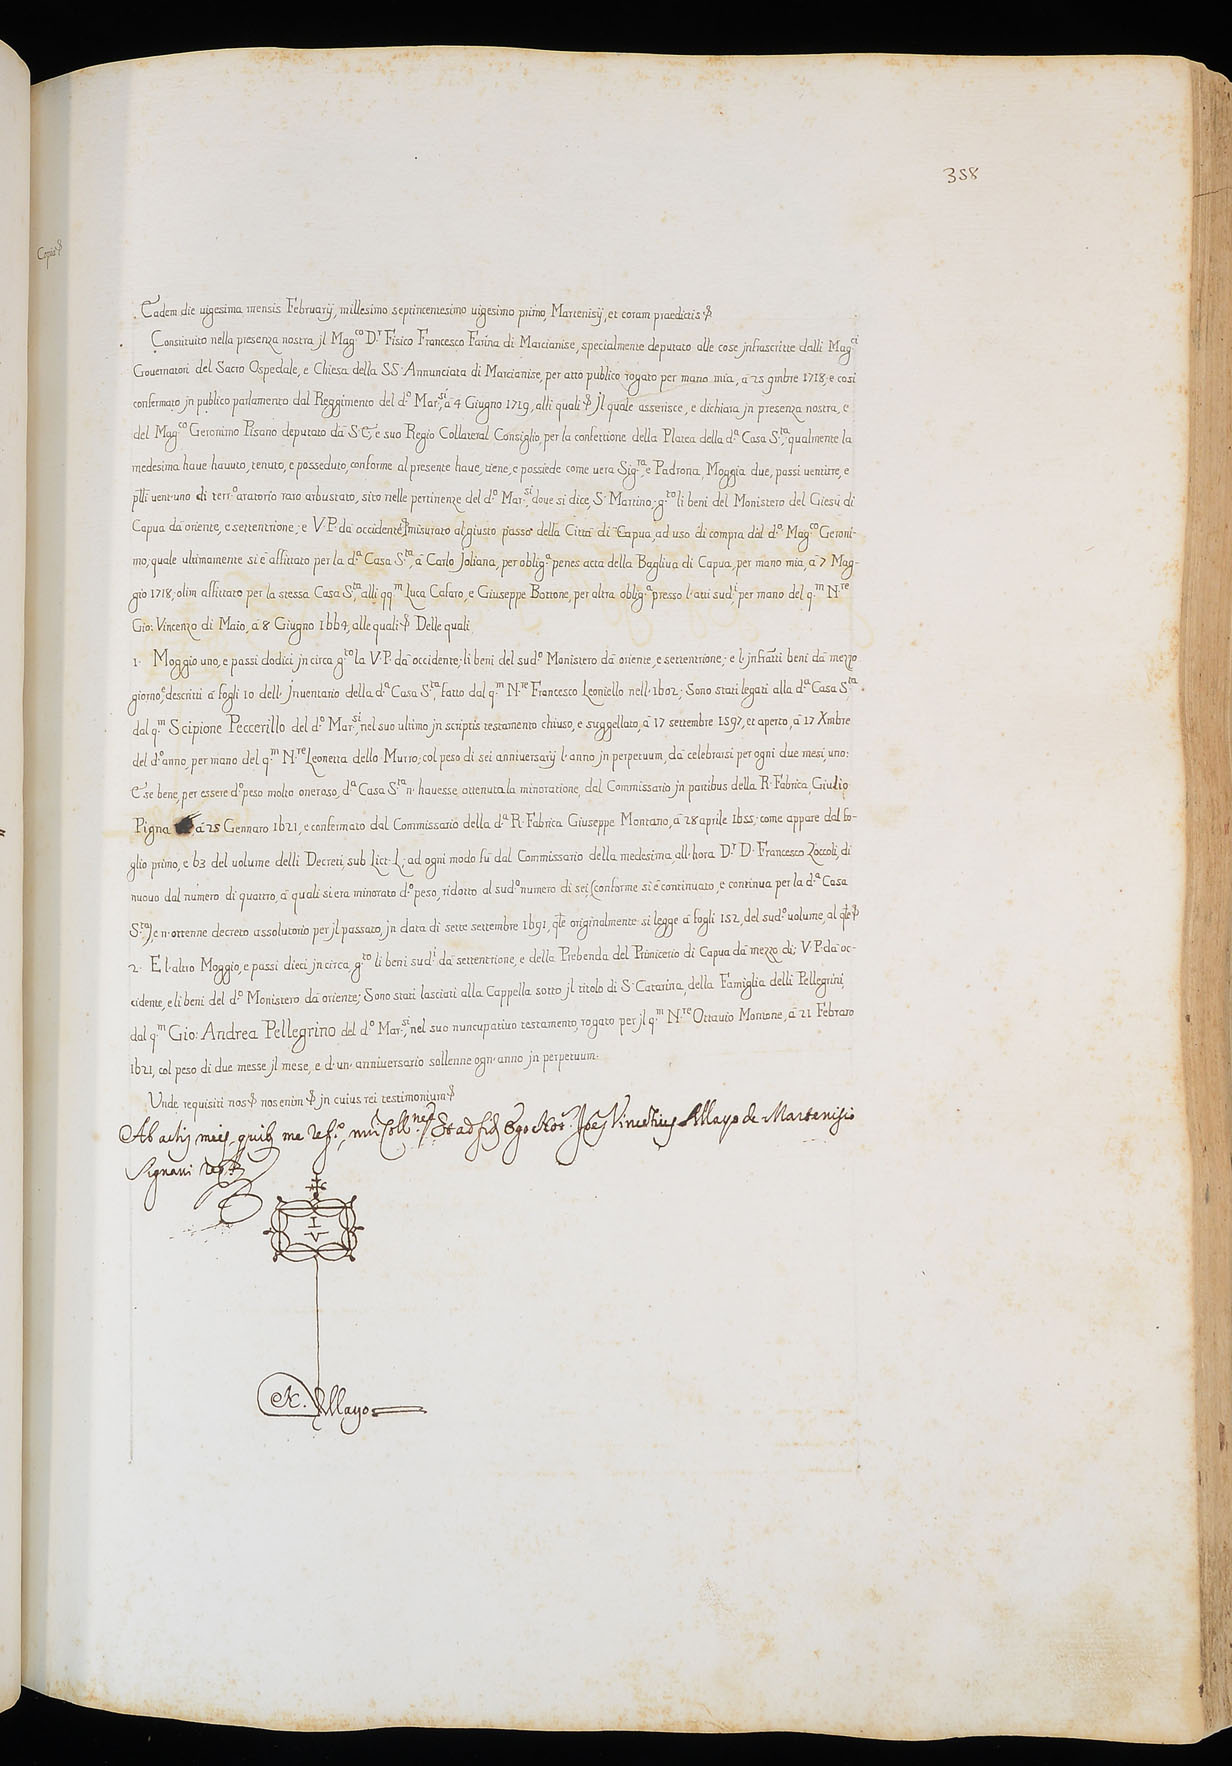 358
Copia
Eadem die uigesima mensis Februarij, millesimo septincentesimo uigesimo primo, Martenisij, et coram praedictis
Constituito nella presenza nostra jl Mag.co D.r Fisico Francesco Farina di Marcianise, specialmente deputato alle cose jnfrascritte dalli Mag.ci
Gouernatori del Sacro Ospedale, e Chiesa della SS. Annunciata di Marcianise, per atto publico rogato per mano mia, à 25 9mbre 1718, e così
confermato jn publico parlamento dal Reggimento del d.o Mar.si, à 4 Giugno 1719, alli quali Jl quale asserisce, e dichiara jn presenza nostra, e
del Mag.co Geronimo Pisano deputato dà S. E., e suo Regio Collateral Consiglio, per la confettione della Platea della d.a Casa S.ta, qualmente la
medesima haue hauuto, tenuto, e posseduto, conforme al presente haue, tiene, e possiede come uera Sig.ra, e Padrona, Moggia due, passi uentitre, e
p̱lli uent'uno di terr.o aratorio raro arbustato, sito nelle pertinenze del d.o Mar.si, doue si dice, S. Martino, g.to li beni del Monistero del Giesù di
Capua dà oriente, e settentrione, e V.P. dà occidente, misurato al giusto passo della Città di Capua, ad uso di compra dal d.o Mag.co Geroni-
mo, quale ultimamente si è affittato per la d.a Casa S.ta, à Carlo Joliana, per oblig.a penes acta della Bagliua di Capua, per mano mia, à 7 Mag-
gio 1718, olim affittato per la stessa Casa S.ta, alli qq.m Luca Cafaro, e Giuseppe Bottone, per altra oblig.a presso l'atti sud.i, per mano del q.m N.re
Gio: Vincenzo di Maio, à 8 Giugno 1664, alle quali Delle quali
1. Moggio uno, e passi dodici jn circa, g.to la V.P. dà occidente, li beni del sud.o Monistero dà oriente, e settentrione, e l'jnfratti beni dà mezzo
giorno, descritti à fogli 10 dell'Jnuentario della d.a Casa S.ta, fatto dal q.m N.re Francesco Leoniello nell'1602; Sono stati legati alla d.a Casa S.ta
dal q.m Scipione Peccerillo del d.o Mar.si, nel suo ultimo jn scriptis testamento chiuso, e suggellato, à 17 settembre 1597, et aperto, à 17 Xmbre
del d.o anno, per mano del q.m N.re Leonetta dello Murro; col peso di sei anniuersarij l'anno jn perpetuum, dà celebrarsi per ogni due mesi, uno:
E se bene, per essere d.o peso molto oneroso, d.a Casa S.ta n'hauesse ottenuta la minoratione, dal Commissario jn partibus della R. Fabrica, Giulio
Pigna , à 25 Gennaro 1621, e confermato dal Commissario della d.a R. Fabrica Giuseppe Montano, à 28 aprile 1655, come appare dal fo-
glio primo, e 63 del uolume delli Decreti, sub Litt. L; ad ogni modo fù dal Commissario della medesima, all'hora D.r D. Francesco Zoccoli, di
nuouo dal numero di quattro, à quali si era minorato d.o peso, ridotto al sud.o numero di sei, (conforme si è continuato, e continua per la d.a Casa
S.ta), e n'ottenne decreto assolutorio per jl passato, jn data di sette settembre 1691, q̱le originalmente si legge à fogli 152, del sud.o uolume, al q̱le
2. E l'altro Moggio, e passi dieci jn circa, g.to li beni sud.i dà settentrione, e della Prebenda del Primicerio di Capua dà mezzo dì, V.P. dà oc-
cidente, e li beni del d.o Monistero dà oriente; Sono stati lasciati alla Cappella sotto jl titolo di S. Catarina, della Famiglia delli Pellegrini,
dal q.m Gio: Andrea Pellegrino del d.o Mar.si, nel suo nuncupatiuo testamento, rogato per jl q.m N.re Ottauio Montone, à 21 Febraro
1621, col peso di due messe jl mese, e d'un'anniuersario sollenne ogn'anno jn perpetuum.
Unde requisiti nos nos enim jn cuius rei testimonium
Ab actis meis, quibus me ref.o, Et ad fid. Ego Not. Joes Vincentius Mayo de Martenisio
signaui
I
V
N. Mayo